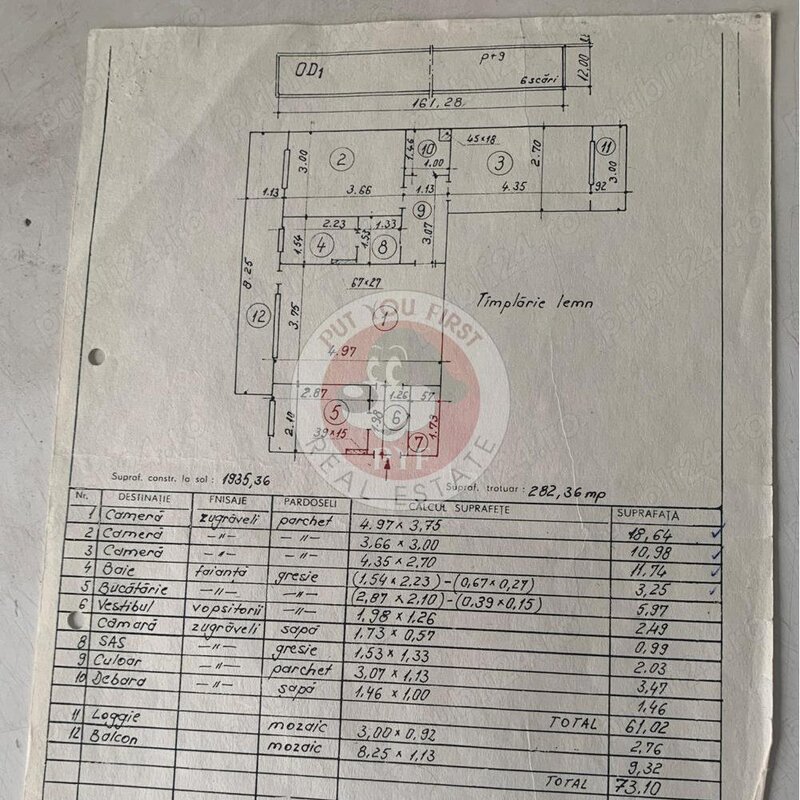 OD1
p+9
6 scări
12,00
161,28
2
3.00
3.66
1.13
1.46
10
1.00
45×18
3
2.70
4.35
11
3.00
92
1.13
9
3.07
2.23
1.33
4
1.54
1.53
8
8.25
67×27
Tîmplărie lemn
12
3.75
1
4.97
2.87
1.26
57
5
2.10
39×15
1.98
6
7
1.73
PUT YOU FIRST
REAL ESTATE
Supraf. constr. la sol : 1935,36
Supraf. trotuar : 282,36 mp
Nr. DESTINAȚIE FNISAJE PARDOSELI CALCUL SUPRAFEȚE SUPRAFAȚA
1 Cameră zugrăveli parchet 4.97 × 3,75 18,64
2 Cameră -〃- -〃- 3.66 × 3.00 10,98
3 Cameră -〃- -〃- 4.35 × 2.70 11.74
4 Baie faianță gresie (1,54 × 2,23) - (0,67 × 0,27) 3,25
5 Bucătărie -〃- -〃- (2,87 × 2,10) - (0.39 × 0,15) 5,97
6 Vestibul vopsitorii -〃- 1,98 × 1,26 2,49
Cămară zugrăveli sapă 1.73 × 0,57 0,99
8 SAS -〃- gresie 1,53 × 1,33 2.03
9 Culoar -〃- parchet 3,07 × 1,13 3,47
10 Debara -〃- sapă 1.46 × 1,00 1.46
TOTAL 61,02
11 Loggie mozaic 3,00 × 0.92 2,76
12 Balcon mozaic 8,25 × 1,13 9,32
TOTAL 73.10